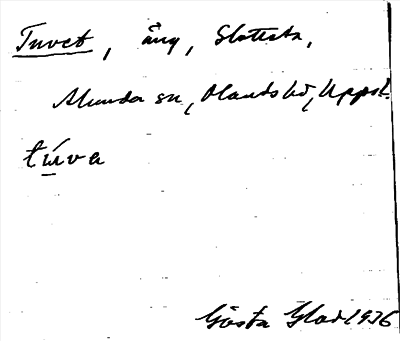 Tuvet, äng, Slättsta,
Alunda sn, Olands hd, Uppsl.
tuva
Gösta Glad 1936